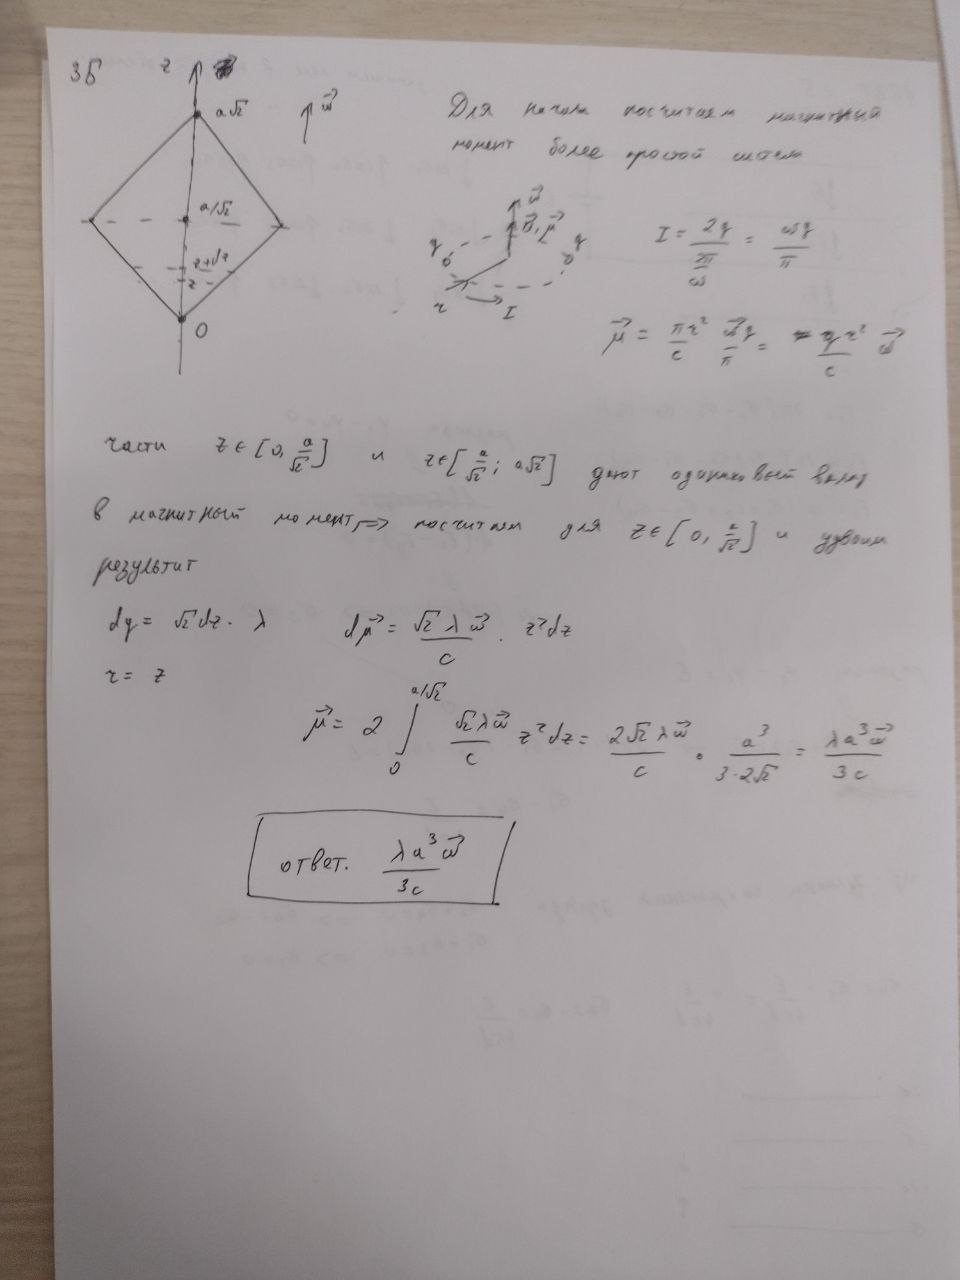 3Б
z
a√2
ω⃗
a/√2
z+dz
z
0
Для начала посчитаем магнитный
момент более простой системы
ω⃗
B⃗, μ⃗
q q
r I
I = 2q / (2π/ω) = ωq/π
μ⃗ = πr²/c ω⃗q/π = qr²/c ω⃗
части z ∈ [0, a/√2] и z ∈ [a/√2; a√2] дают одинаковый вклад
в магнитный момент, => посчитаем для z ∈ [0, a/√2] и удвоим
результат
dq = √2 dz · λ dμ⃗ = √2 λ ω⃗/c · z² dz
r = z
μ⃗ = 2 ∫₀^{a/√2} √2 λ ω⃗/c z² dz = 2√2 λ ω⃗/c · a³/(3·2√2) = λ a³ ω⃗/3c
ответ. λ a³ ω⃗/3c